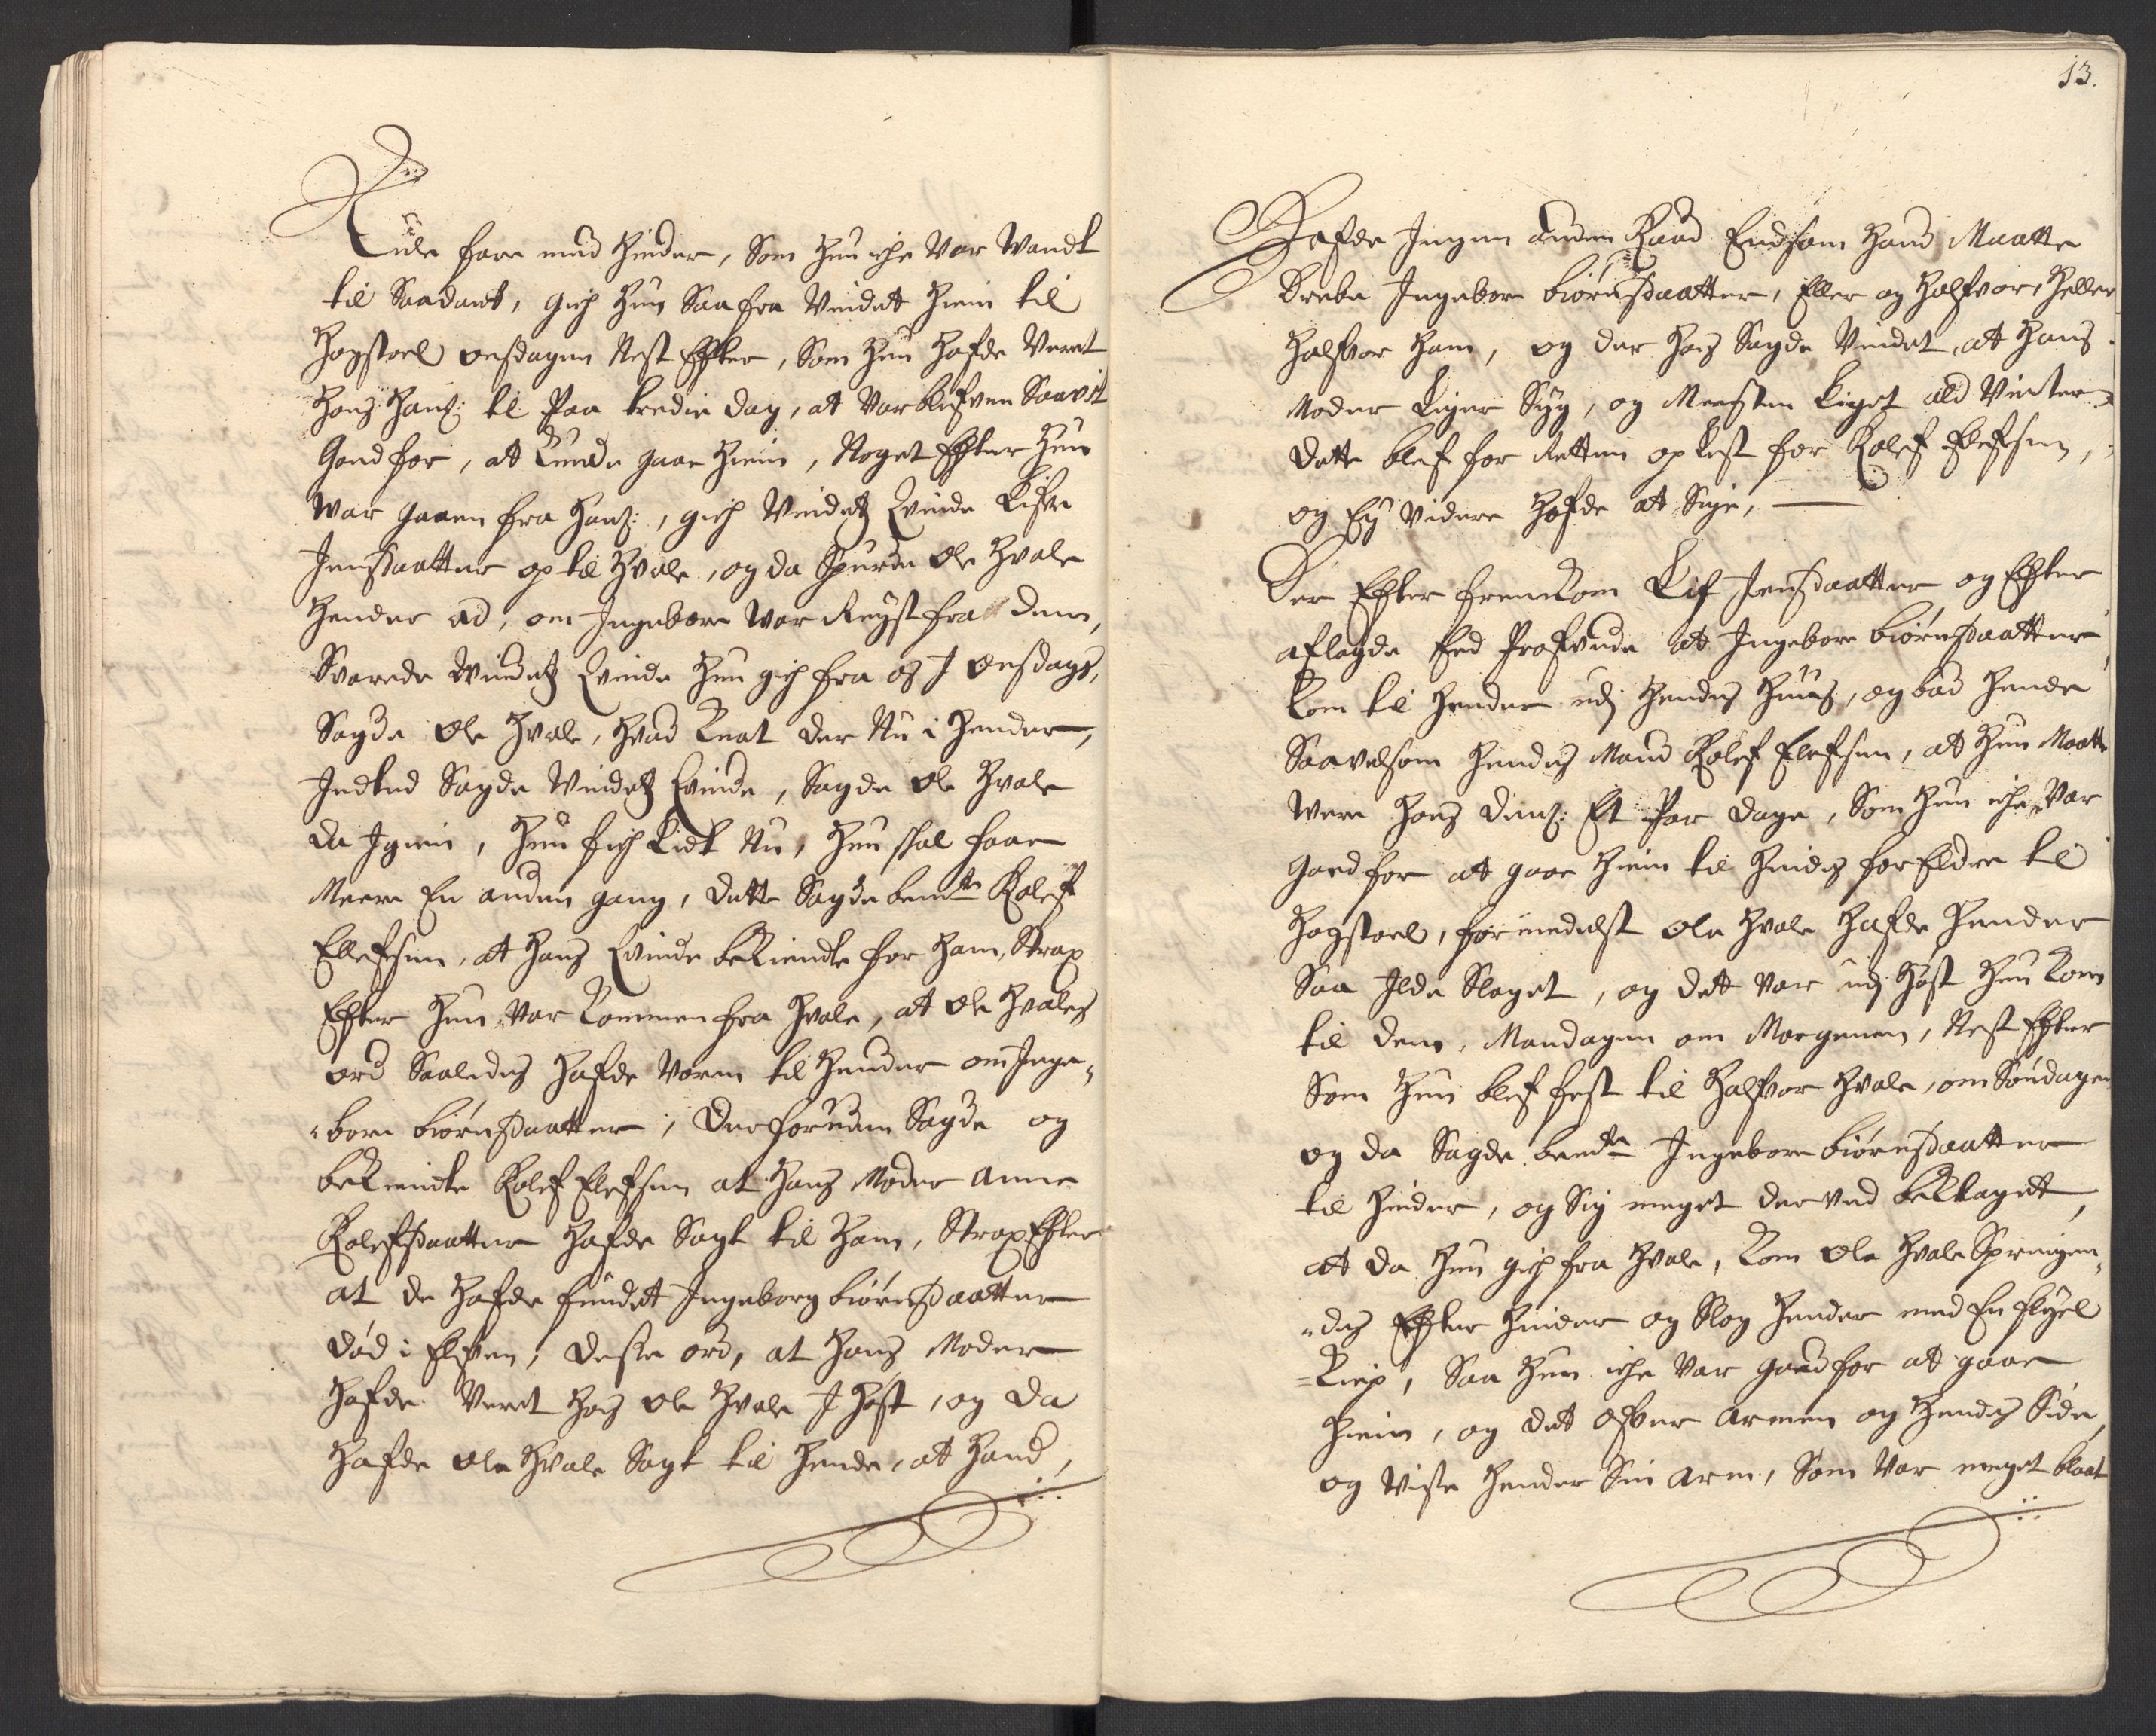 Kule fare med hinder, Som hun iche var vandt
til Saadant, gich hun Saa fra Vindet hiem til
Hogstoel onsdagen Nest Effter, Som hun hafde veret
hos hanß: til Paa tredie dag, at var blefven Saavit
goed for, at kunde gaae hiem, Noget Effter hun
war gaaen fra hanß:, gich Vindetz Qvinde Lisve
Jenßdaatter op til Hvale, og da Spurde Ole Hvale
hender ad, om Ingebore war Reyst fra dem,
Svarede Windetz Qvinde hun gich fra oß J onsdags,
Sagde Ole Hvale, hvad knat der Nu i hender,
Intet Sagde Vindetz Qvinde, Sagde Ole Hvale
da Igien, hun fich Lidt Nu, hun skal faae
Meere En anden gang, dette Sagde bemte Rolef
Ellefsen, at hans Qvinde bekiendte for ham, Strax
Effter hun var kommen fra Hvale, at Ole Hvales
ord Saaledes hafde voren til hender om Inge„
„bore biørnßdaatter, Der foruden Sagde og
bekiendte Rolef Elefsen at hans Moder Anne
Rolefsdaatter hafde Sagt til ham, Strax Effter
at de hafde fundet Ingeborg biørnßdaatter
død i Elfven, desse ord, at hans Moder
hafde Veret hos Ole Hvale J høst, og da
hafde Ole Hvale Sagt til hende, at hand,
13.
Hafde Ingen anden Raad End som hand Maatte
Drebe Ingebore biørnßdaatter, Eller og Halfvor, heller
Halfvor ham, og der hos Sagde Vindet, at hans
Moder Liger Syg, og Meesten Liget ald Vinter
Dette blef for Retten oplest for Rolef Elefsen,
og Ey videre hafde at Sige, —
Der Effter fremkom Lif Jenßdaatter og Effter
aflagde Eed Profvede at Ingebore biørnßdaatter
kom til hender udj hendes Huus, og bad hende
Saavelsom hendes Mand Rolef Elefsen, at hun Maatte
were hos dem: Et Par dage, Som hun iche var
goed for at gaae hiem til hindes forEldre til
Hogstoel, formedelst Ole Hvale hafde hender
Saa Ilde Slaget, og dett var udj høst hun kom
til dem, Mandagen om Morgenen, Nest Effter
Som hun blef fest til Halfvor Hvale, om Søndagen
og da Sagde bemte Ingebore biørnßdaatter
til hinder, og Sig meget der ved beklaget,
at da hun gich fra Hvale, kom Ole Hvale Springen„
„des Effter hinder og Slog hender med En flygel
=kiep, Saa hun iche var goed for at gaae
hiem, og det ofver Armen og hendes Side,
og Viste hender Sin Arm, Som var meget blaat